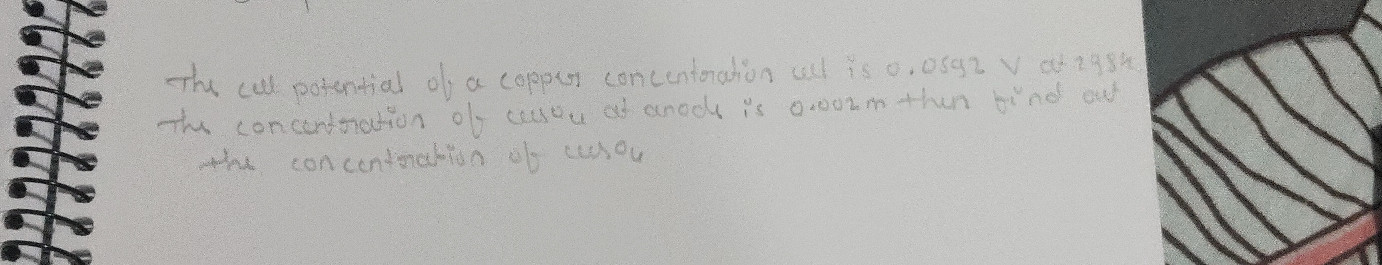 The cell potential of a copper concentration cell is 0.0592 V at 298k
The concentration of cuso4 at anode is 0.002m then find out
the concentration of cuso4